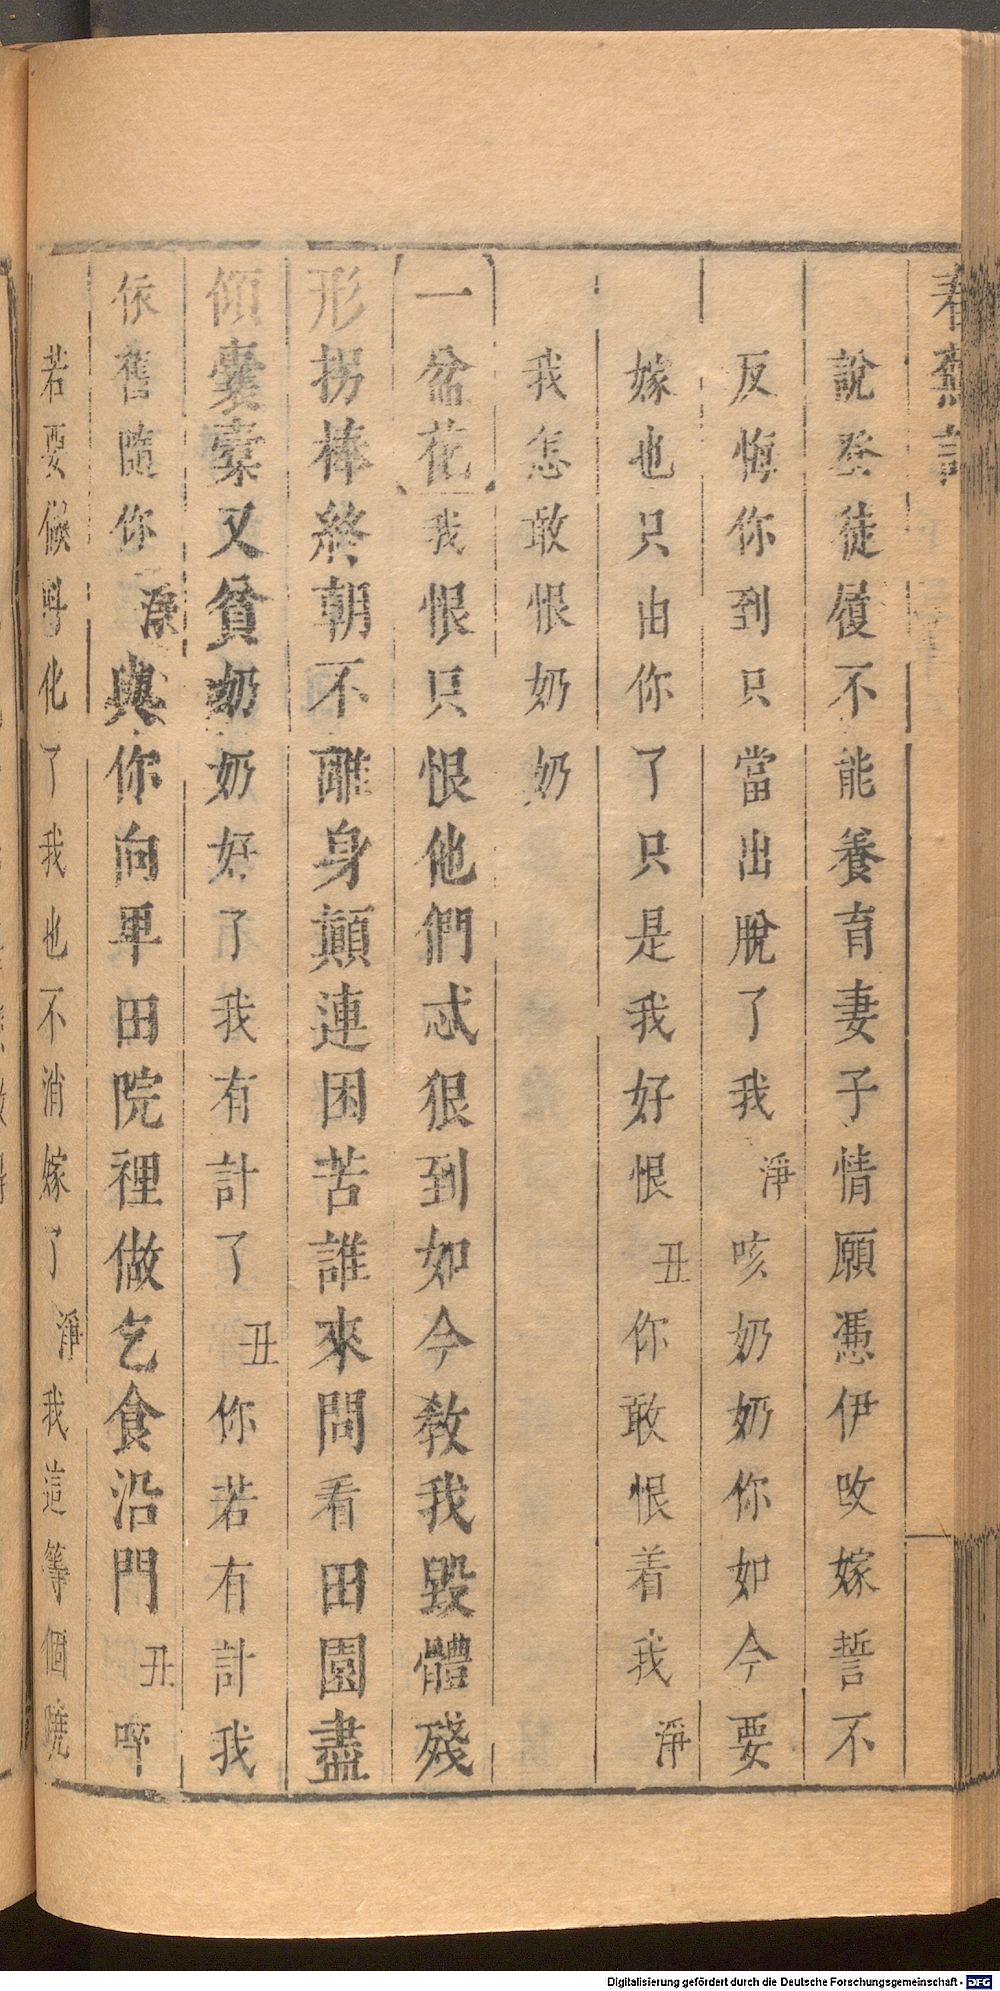 春蕪記
說癸徒履不能養育妻子情願憑伊改嫁誓不
反悔你到只當出脫了我淨咳奶奶你如今要
嫁也只由你了只是我好恨丑你敢恨着我淨
我怎敢恨奶奶
一盆花我恨只恨他們忒狠到如今教我毀體殘
形拐棒終朝不離身顛連困苦誰來問看田園盡
傾囊橐又貧奶奶好了我有計了丑你若有計我
依舊隨你淨與你向卑田院裡做乞食沿門丑啐
若要候時化了我也不消嫁了淨我這等個蹺
Digitalisierung gefördert durch die Deutsche Forschungsgemeinschaft - DFG